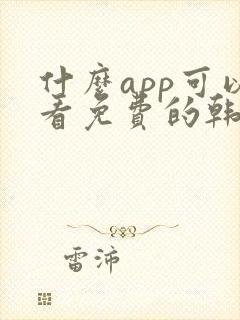 什麼app可以
看免費的韩
雷沛